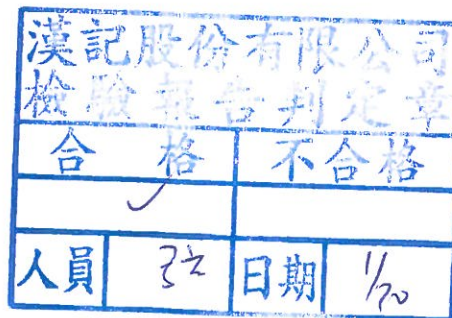 漢記股份有限公司
檢驗報告判定章
合格 不合格
✓
人員 日期 1/20